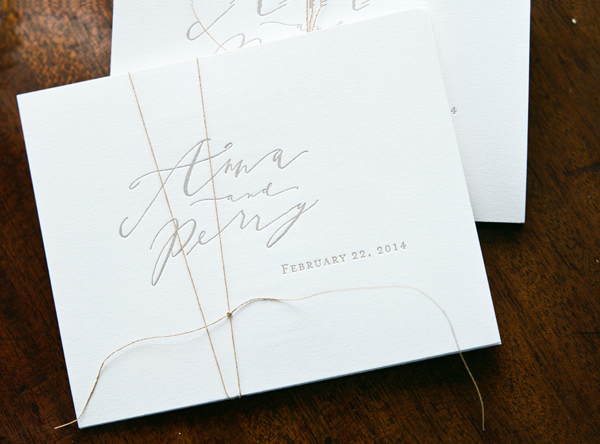 Anna
and
Perry
FEBRUARY 22, 2014
4